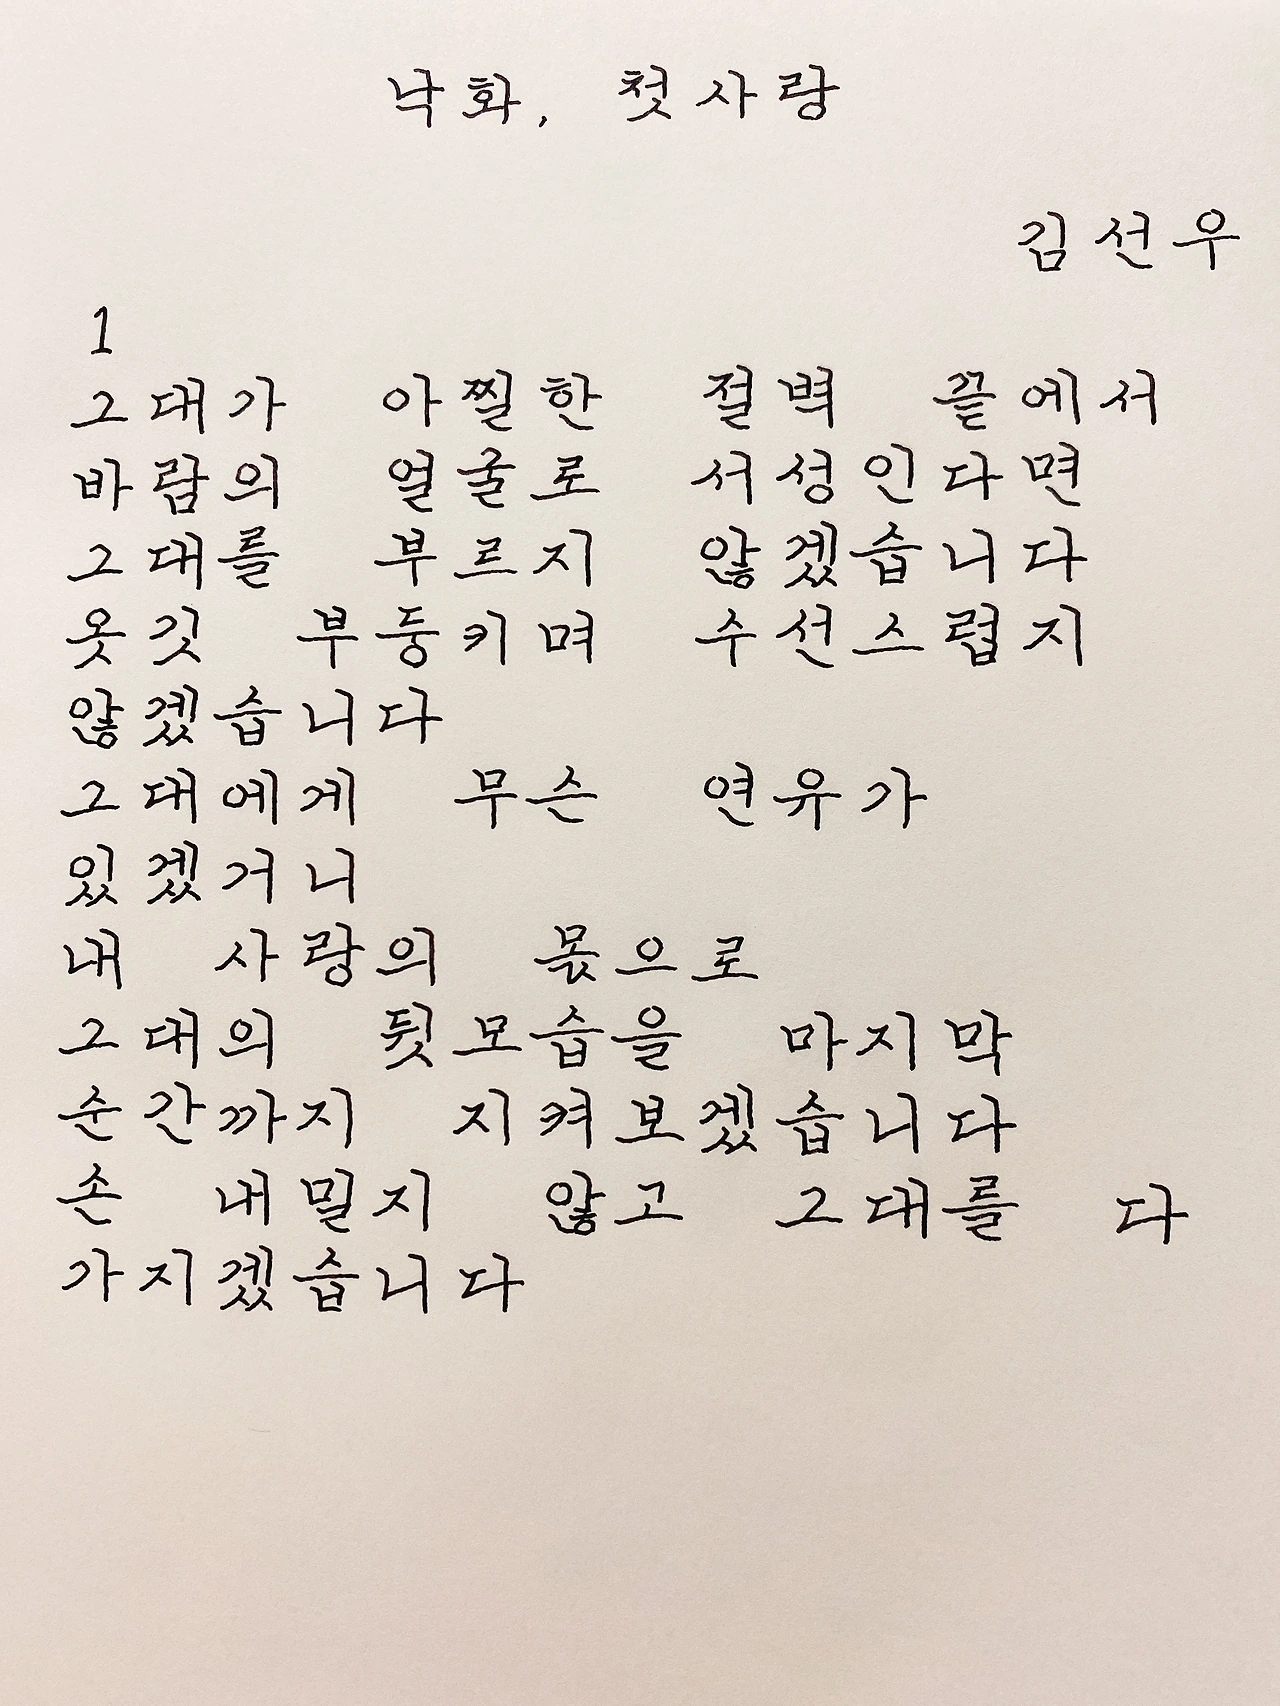 낙화, 첫사랑
김선우
1
그대가 아찔한 절벽 끝에서
바람의 얼굴로 서성인다면
그대를 부르지 않겠습니다
옷깃 부둥키며 수선스럽지
않겠습니다
그대에게 무슨 연유가
있겠거니
내 사랑의 몫으로
그대의 뒷모습을 마지막
순간까지 지켜보겠습니다
손 내밀지 않고 그대를 다
가지겠습니다